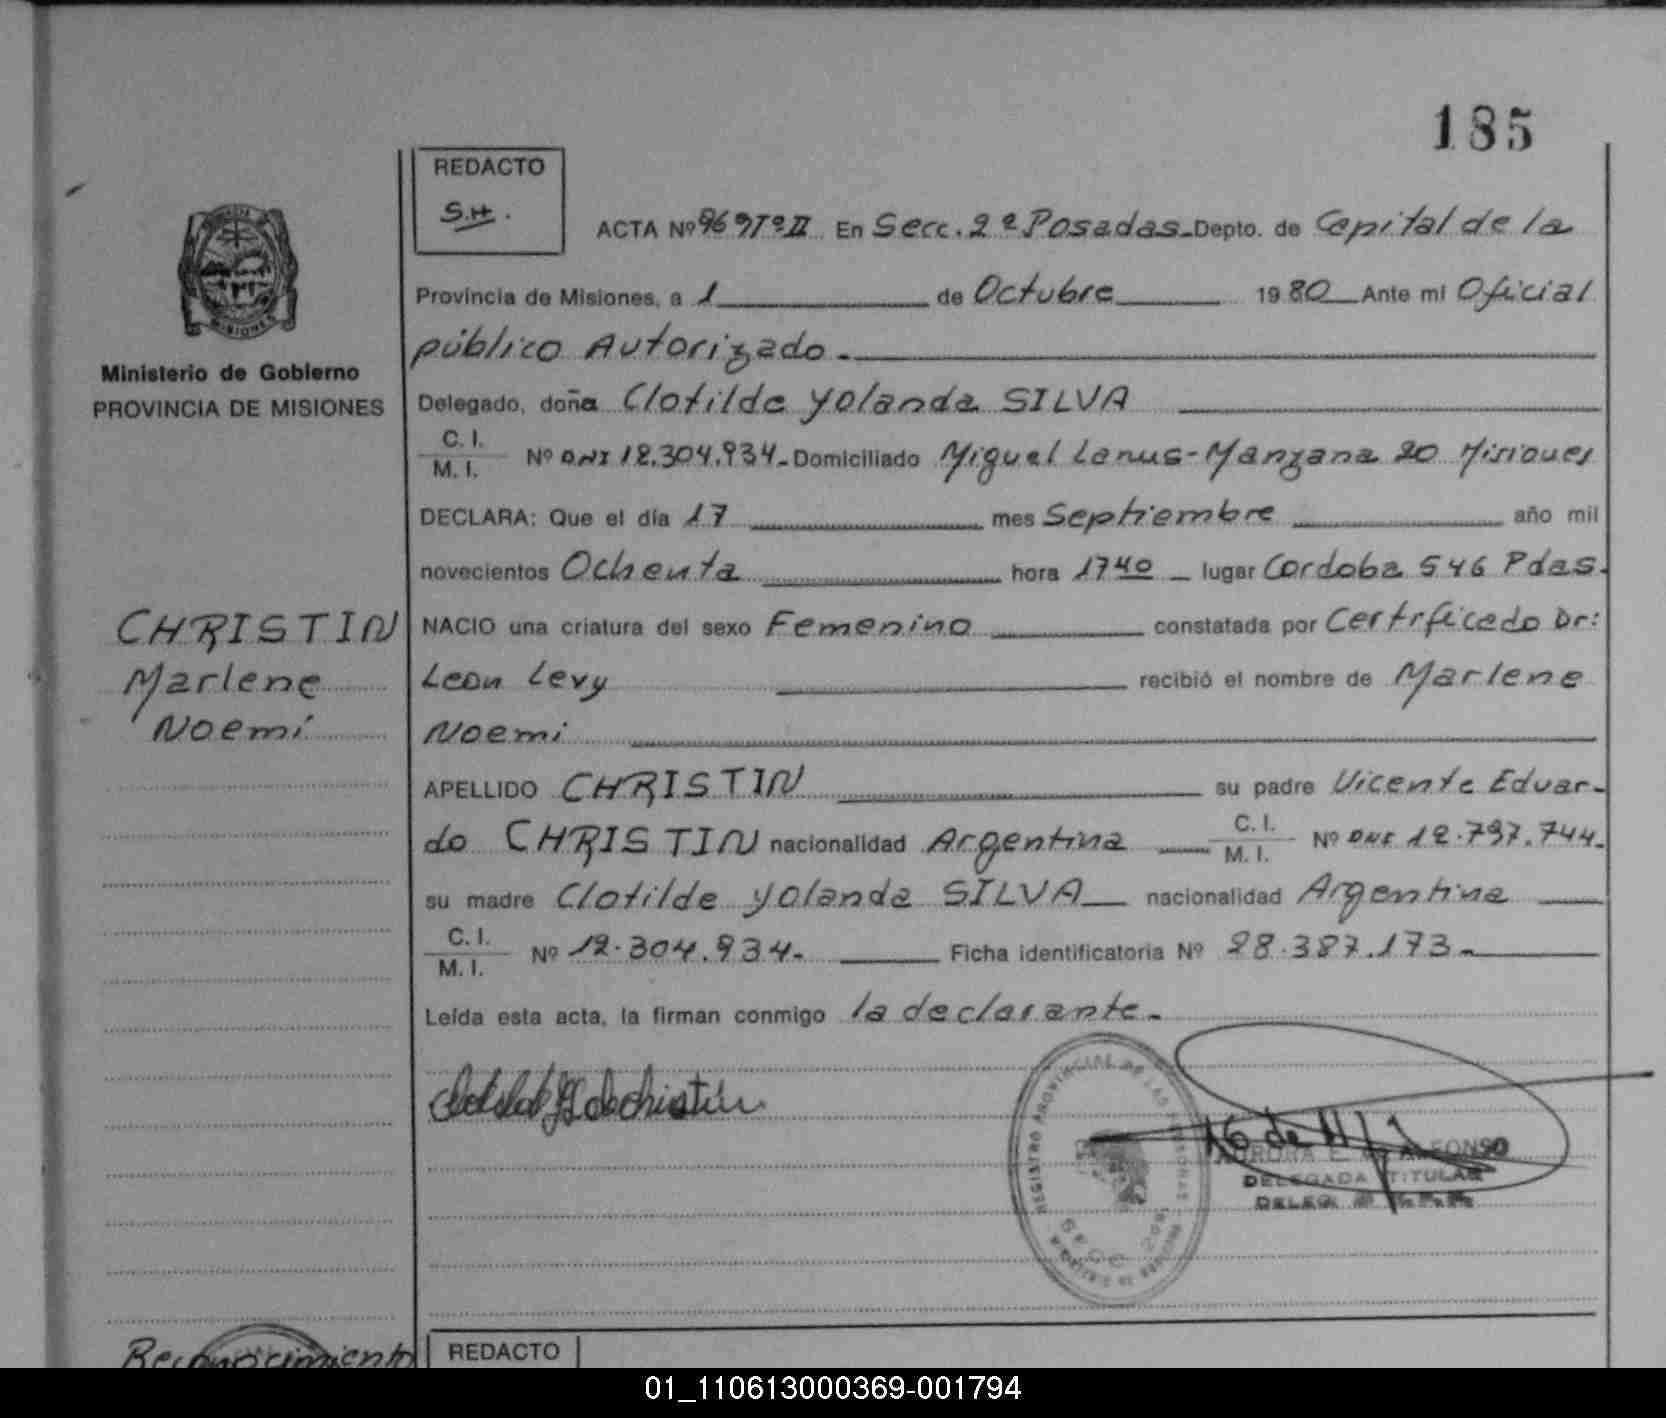 185
REDACTO
S.H.
ACTA Nº 969 Tº II En Secc. 2ª Posadas.- Depto. de Capital de la
Provincia de Misiones, a 1 de Octubre 1980 Ante mi Oficial
público Autorizado.-
Ministerio de Gobierno
PROVINCIA DE MISIONES
Delegado, doña Clotilde Yolanda SILVA
C. I.
M. I. Nº DNI 12.304.934.- Domiciliado Miguel Lanus-Manzana 20 Misiones
DECLARA: Que el día 17 mes Septiembre año mil
novecientos Ochenta hora 1740 lugar Cordoba 546 Pdas.
NACIO una criatura del sexo Femenino constatada por Certificado Dr:
Leon Levy recibió el nombre de Marlene
Noemi
CHRISTIN
Marlene
Noemí
APELLIDO CHRISTIN su padre Vicente Eduar-
do CHRISTIN nacionalidad Argentina C. I. M. I. Nº DNI 12.797.744.
su madre Clotilde Yolanda SILVA nacionalidad Argentina
C. I.
M. I. Nº 12.304.934.- Ficha identificatoria Nº 28.387.173.-
Leída esta acta, la firman conmigo la declarante.-
REGISTRO PROVINCIAL DE LAS PERSONAS
SECC. 2ª
MISIONES
DELEGADA TITULAR
Reconocimiento
REDACTO
01_110613000369-001794